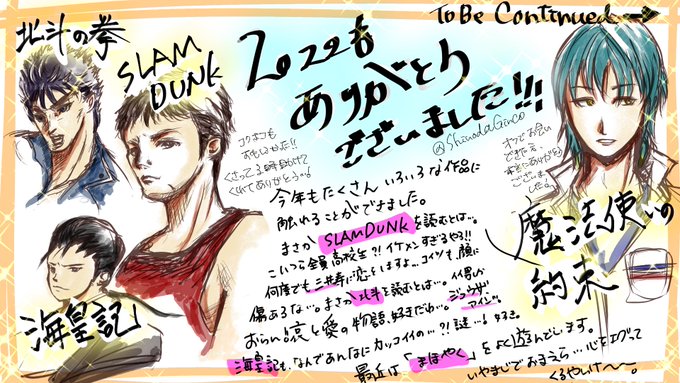 To Be Continued→
北斗の拳
SLAM
DUNK
2022も
ありがとう
ございました!!!
@ShinodaGinco
おもしろかった!!
くれてありがとう
今年もたくさん いろいろな作品に
触れることができました。
まさか SLAMDUNKを読むとは…。
こいつら全員高校生?!イケメンすぎるやろ!!
何度も三井寿に恋をしますよ…コイツも顔に
傷あるな…。まさか北斗を読むとは…。イイ男が
哀と愛の物語、好きだわ…。
海皇記も、なんであんなにカッコイイの…?!謎…。好き。
最近は「まほやく」をよく遊んでいます。
いやまじでおまえら…心をエグって
くるやんけ〜〜。
海皇記
オフでお会い
できた方、
ありがとう
ございま
した。
魔法使いの
約束